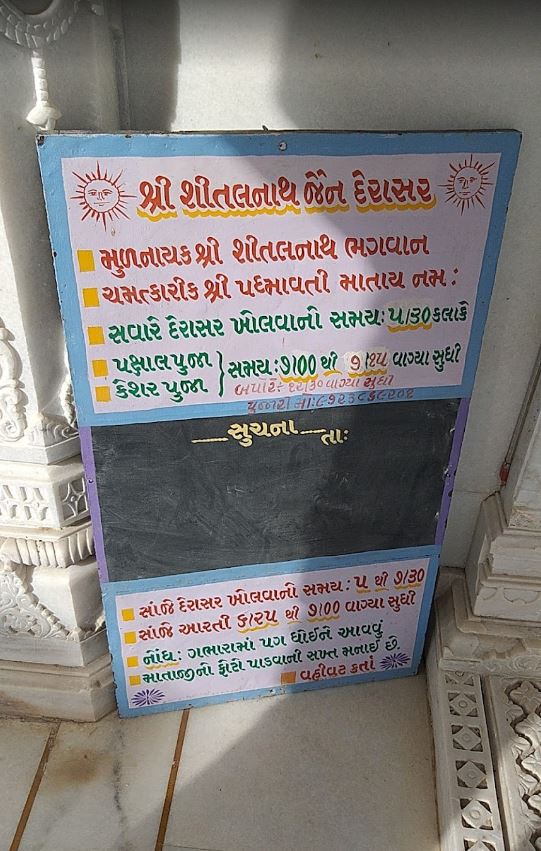 શ્રી શીતલનાથ જૈન દેરાસર
મુળનાયક શ્રી શીતલનાથ ભગવાન
ચમત્કારીક શ્રી પદમાવતી માતાય નમ:
સવારે દેરાસર ખોલવાનો સમય: ૫/૩૦ કલાકે
પક્ષાલ પુજા
કેશર પુજા
સમય: ૭/00 થી ૭/૪૫ વાગ્યા સુધી
વાગ્યા સુધી
સુચના તા:
સાંજે દેરાસર ખોલવાનો સમય: ૫ થી ૭/૩૦
સાંજે આરતી થી ૭/00 વાગ્યા સુધી
નોંધ: ગભારામાં પગ ધોઈને આવવું
માતાજીનો ફોટો પાડવાની સખ્ત મનાઈ છે
વહીવટ કર્તા